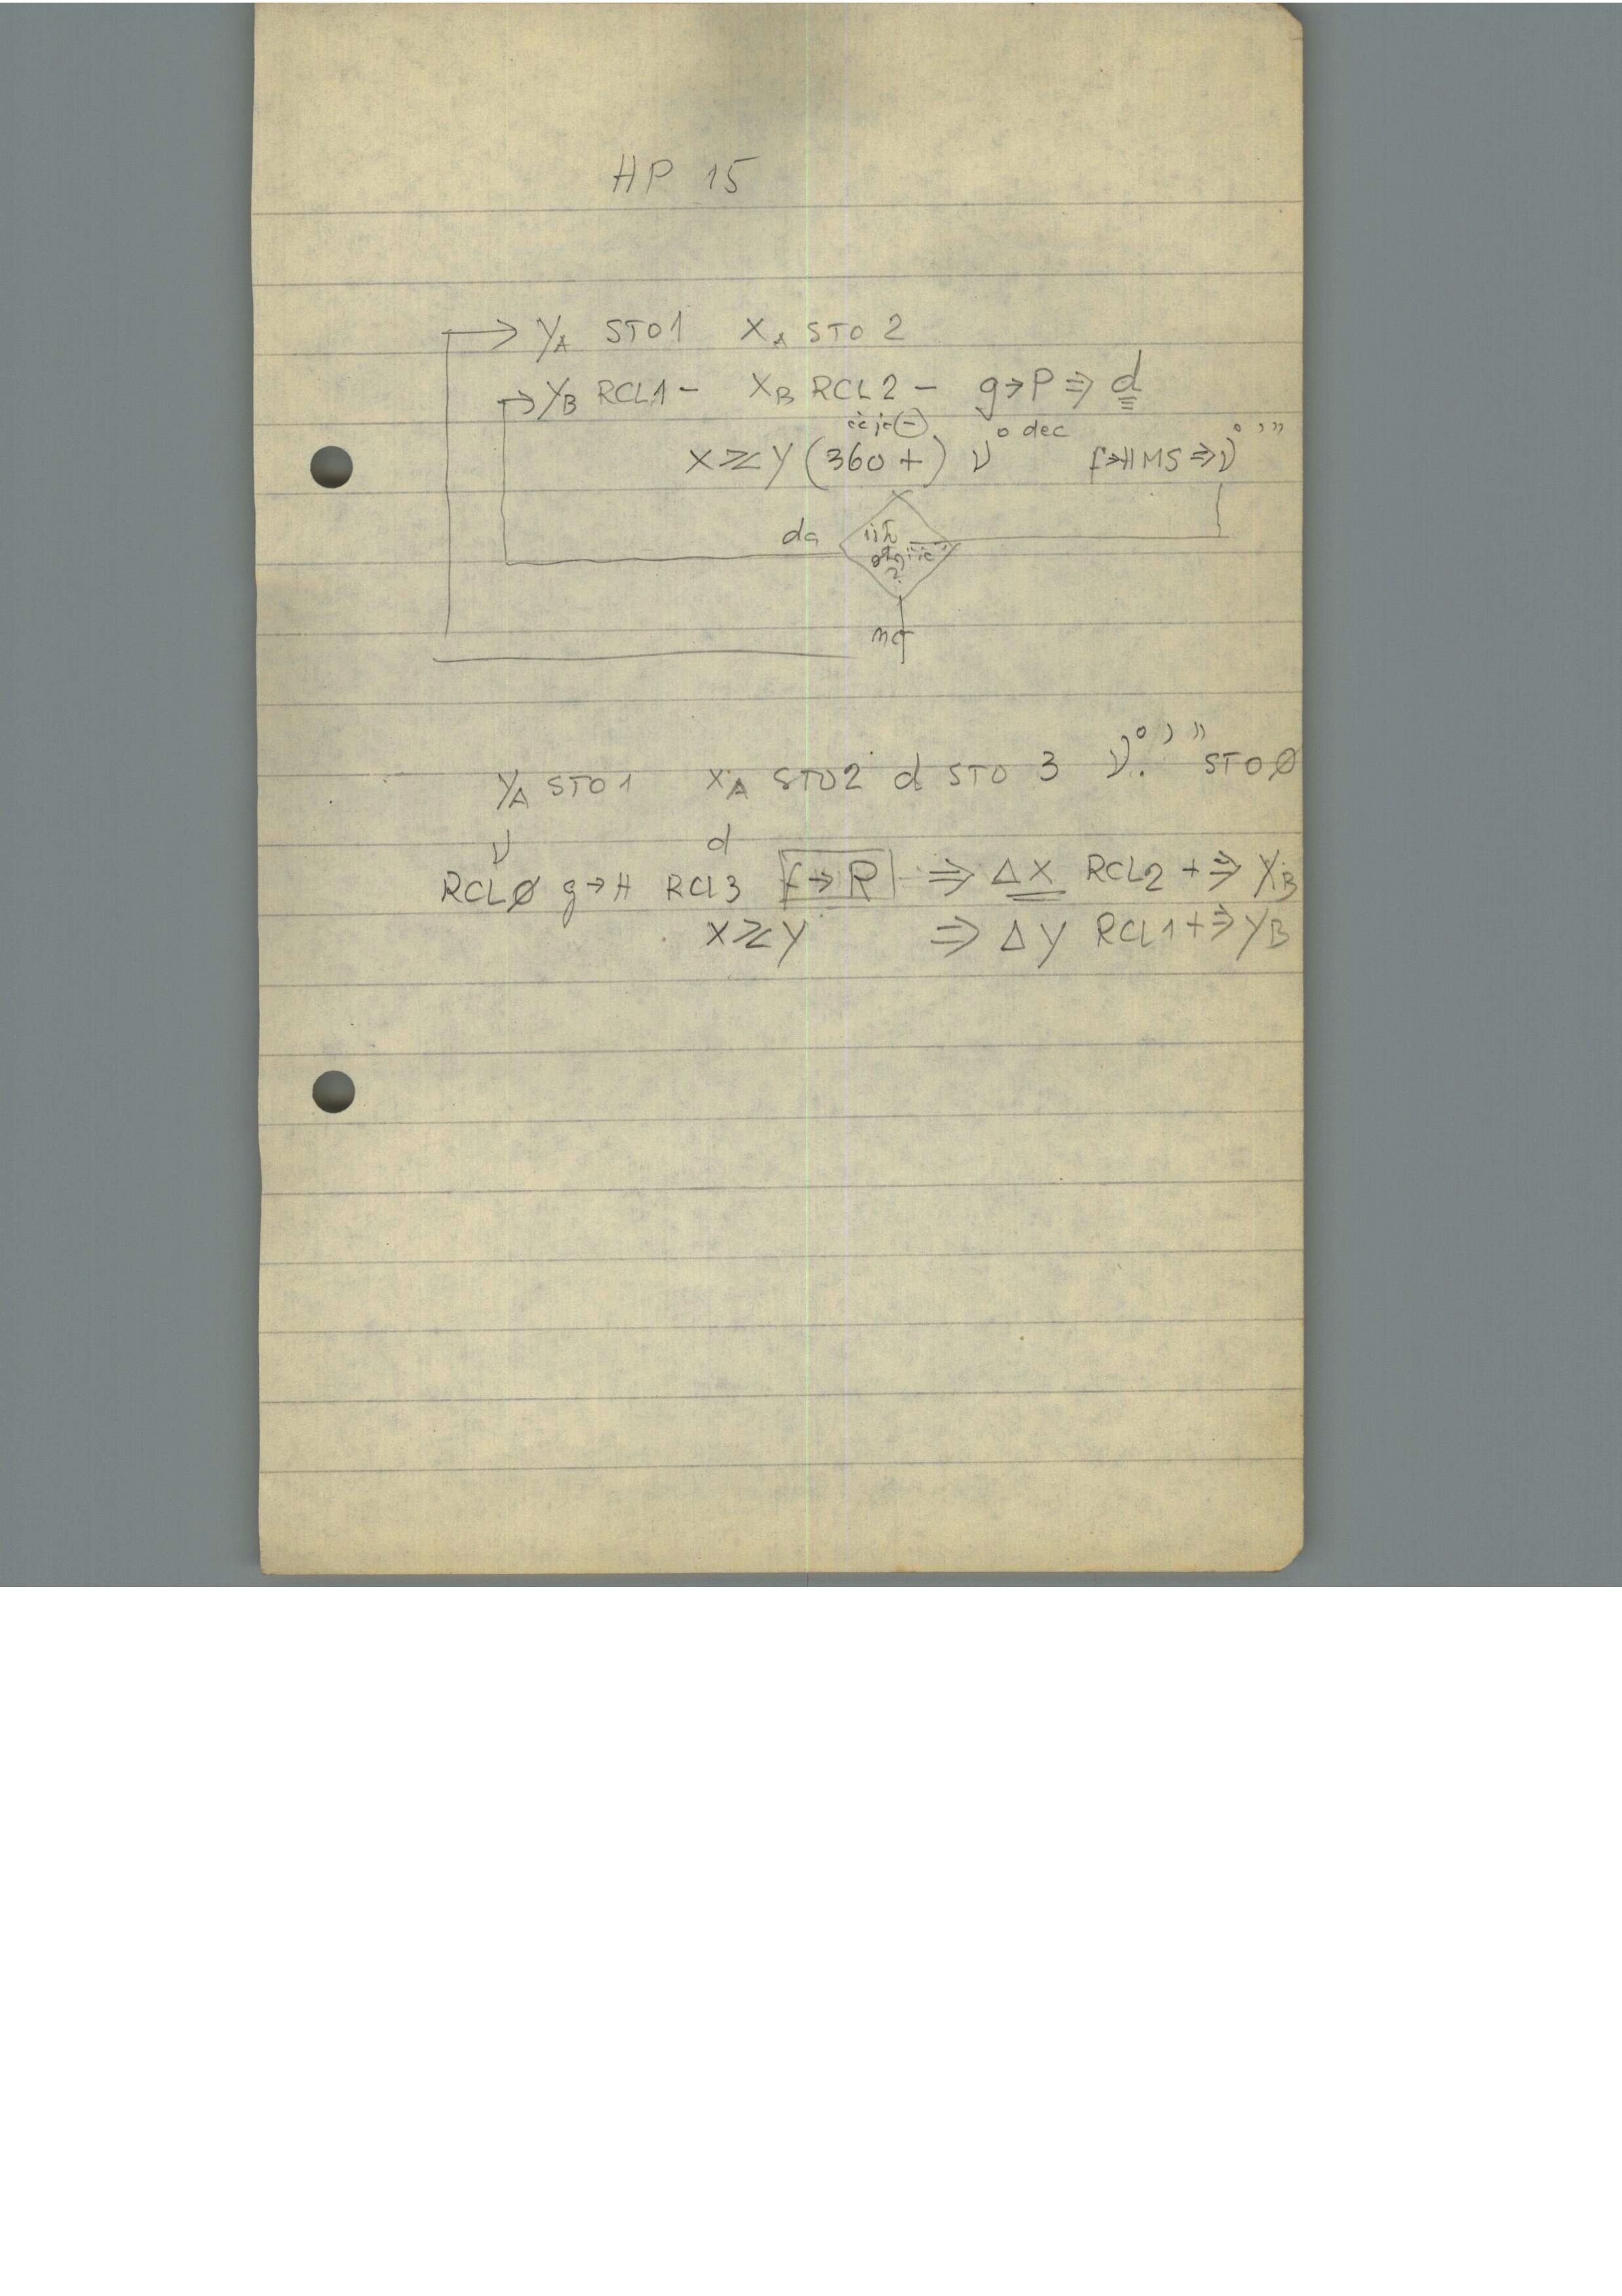 HP 15
→ YA STO1 XA STO 2
→ YB RCL1 - XB RCL2 - g→P ⇒ d
X≷Y (360 +) ν ° dec f→HMS ⇒ ν ° ' "
da
ne
YA STO1 XA STO2 d STO 3 ν ° ' " STO Ø
ν d
RCLØ g→H RCL3 f→R ⇒ ΔX RCL2 + ⇒ XB
X≷Y ⇒ ΔY RCL1 + ⇒ YB